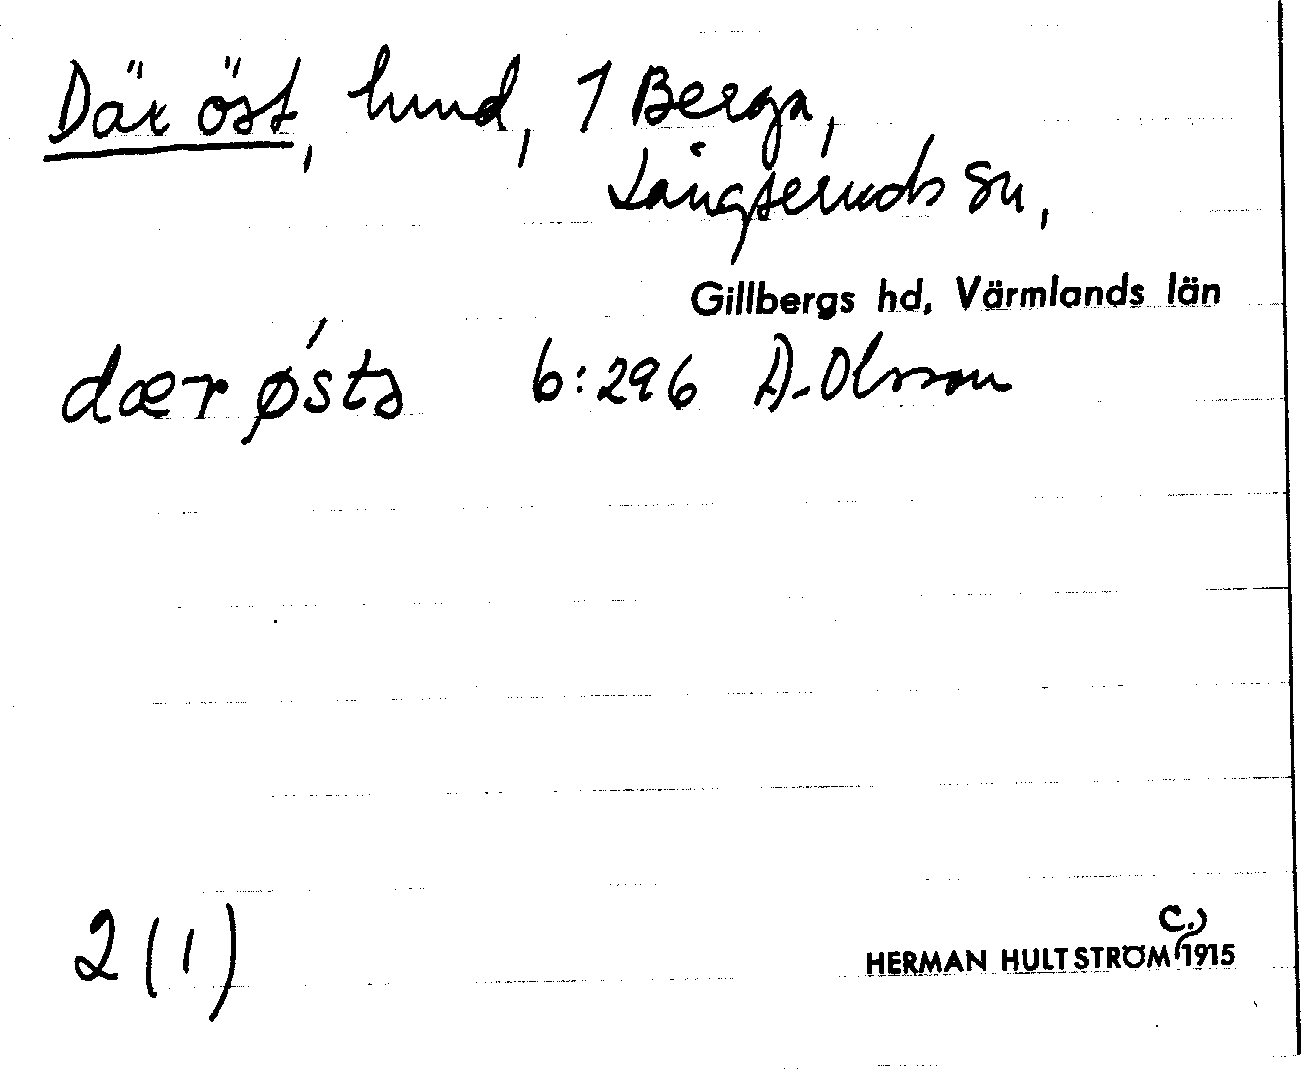 Där öst, hmd, 1 Berga,
Långseruds sn,
Gillbergs hd, Värmlands län
dær ǿstə 6:296 A. Olsson
2 (1)
C.
HERMAN HULTSTRÖM 1915